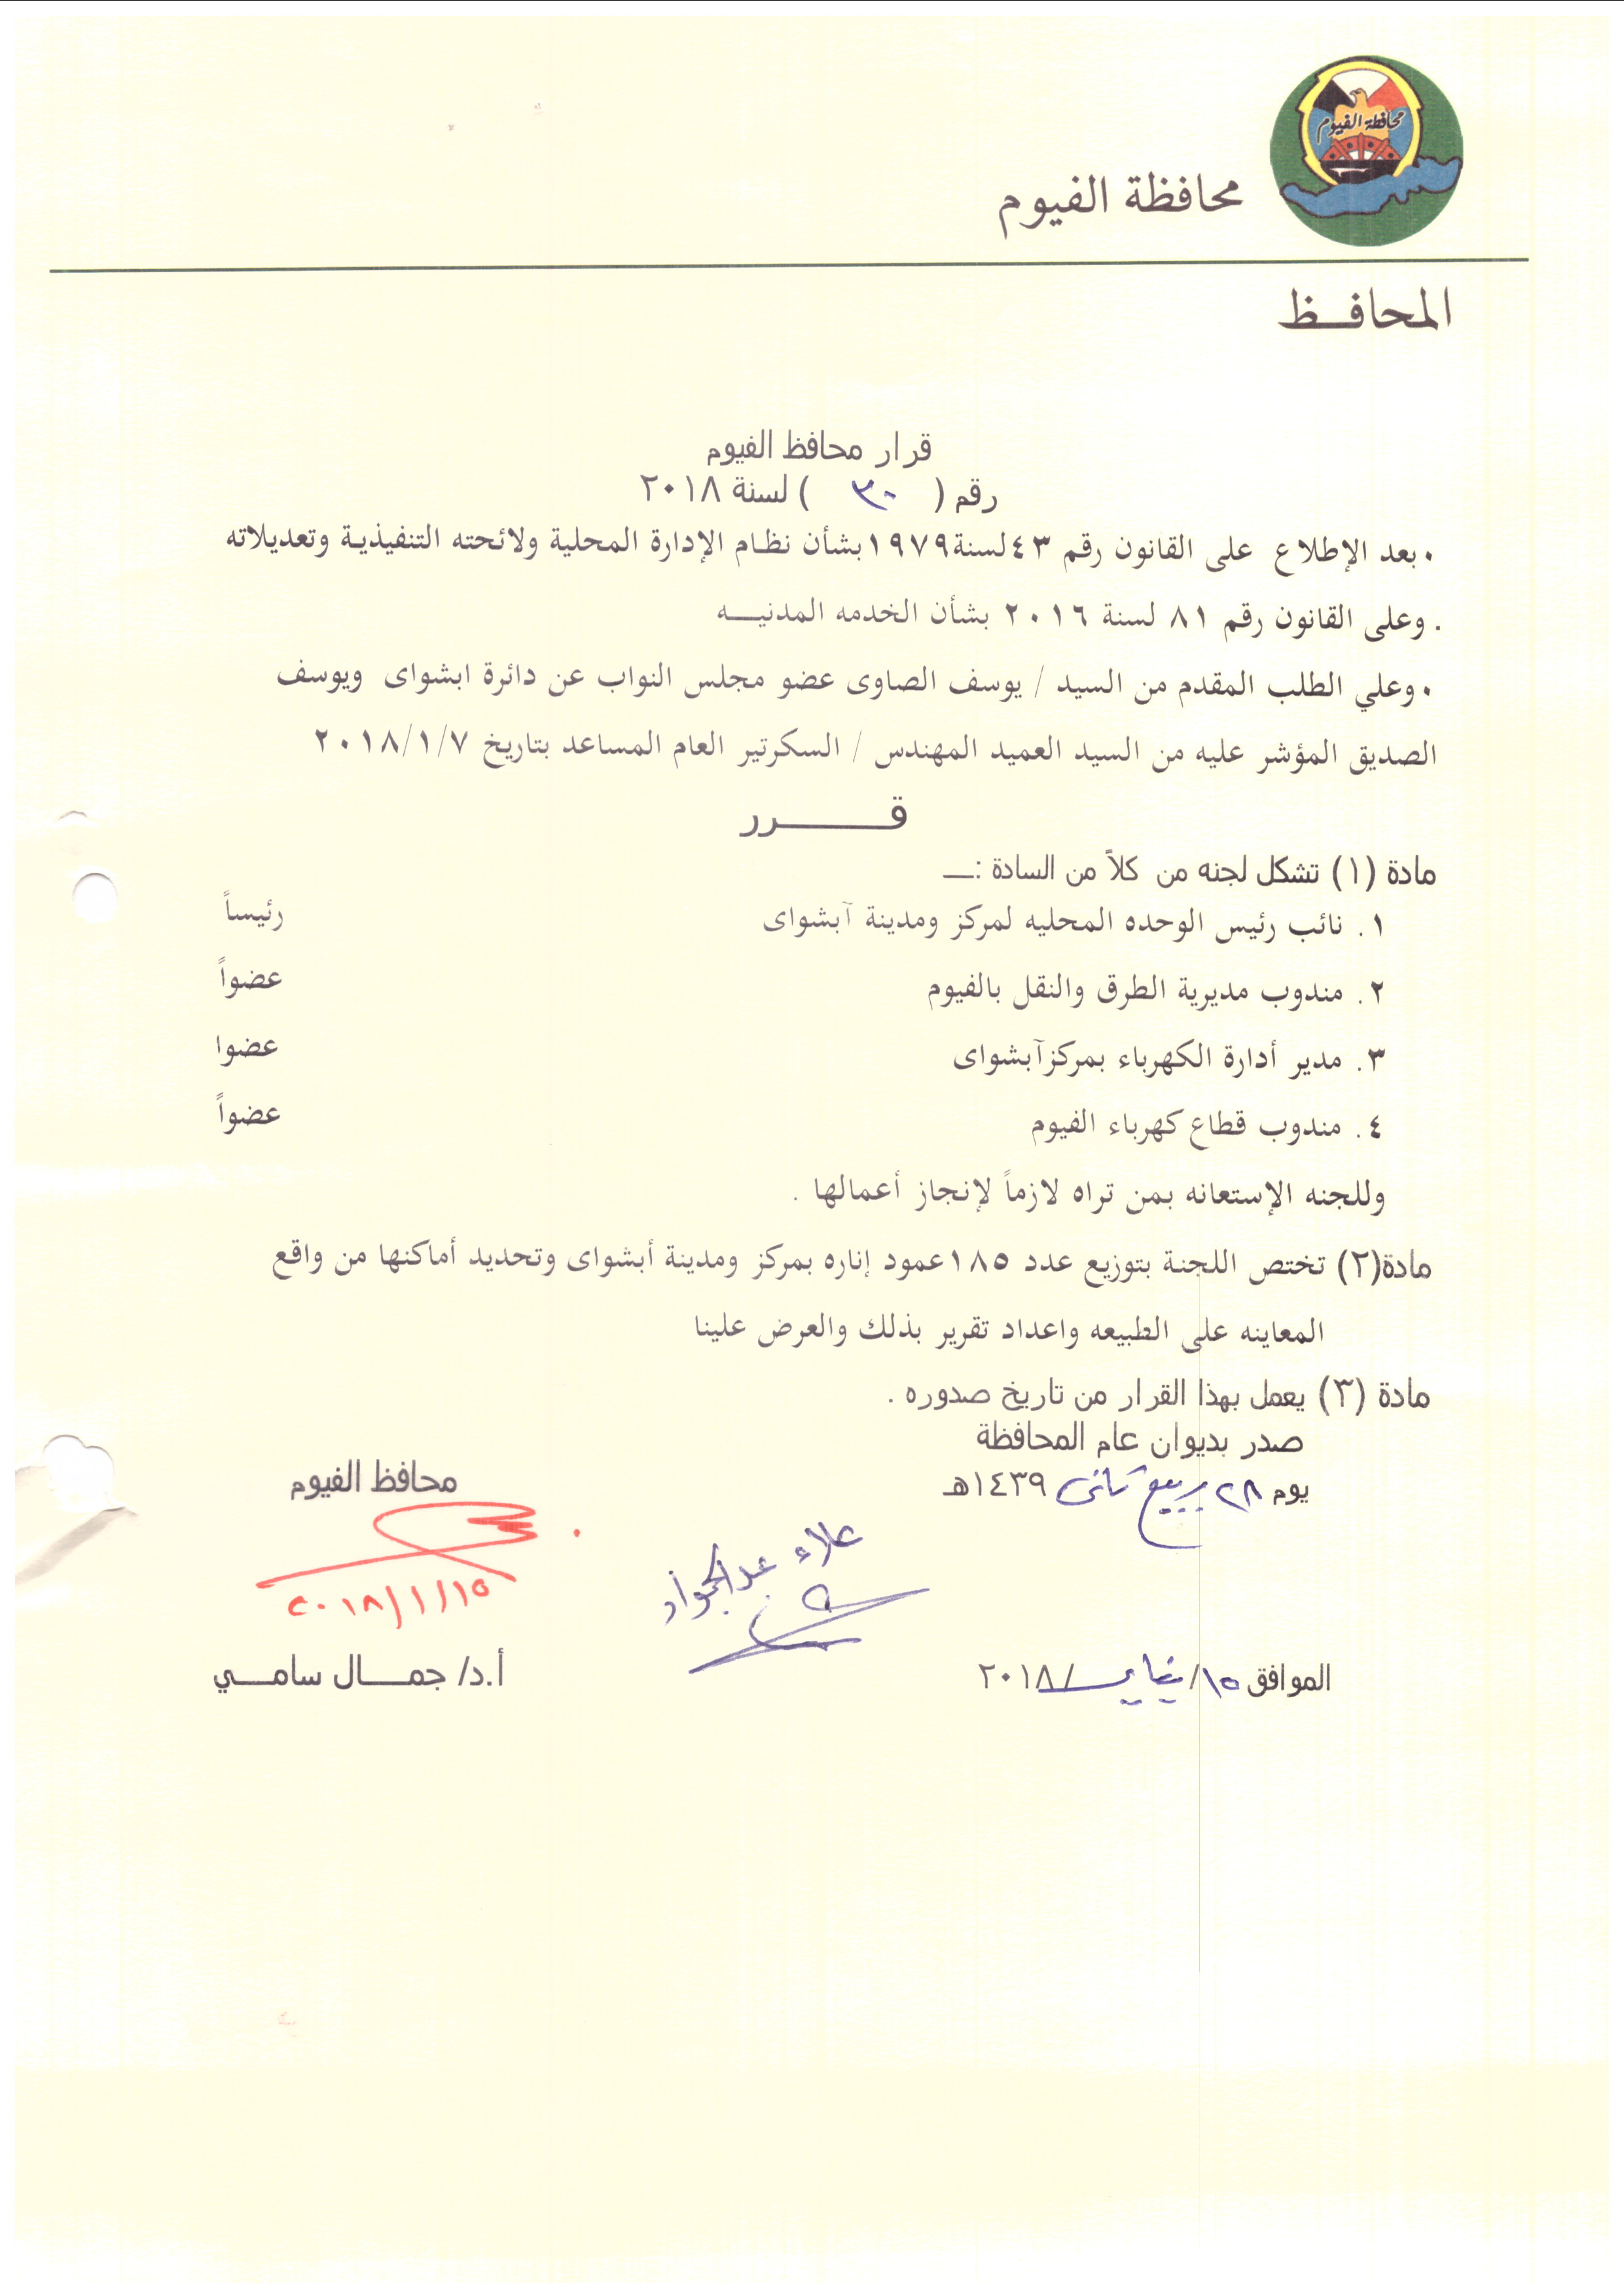 محافظة الفيوم
محافظة الفيوم
المحافــظ
قرار محافظ الفيوم
رقم ( ٣٠ ) لسنة ٢٠١٨
• بعد الإطلاع على القانون رقم ٤٣ لسنة ١٩٧٩ بشأن نظام الإدارة المحلية ولائحته التنفيذية وتعديلاته
. وعلى القانون رقم ٨١ لسنة ٢٠١٦ بشأن الخدمه المدنيـــه
• وعلي الطلب المقدم من السيد / يوسف الصاوى عضو مجلس النواب عن دائرة ابشواى ويوسف
الصديق المؤشر عليه من السيد العميد المهندس / السكرتير العام المساعد بتاريخ ٢٠١٨/١/٧
قـــــــرر
مادة (١) تشكل لجنه من كلاً من السادة :ــ
١. نائب رئيس الوحده المحليه لمركز ومدينة آبشواى رئيساً
٢. مندوب مديرية الطرق والنقل بالفيوم عضواً
٣. مدير أدارة الكهرباء بمركزآبشواى عضوا
٤. مندوب قطاع كهرباء الفيوم عضواً
وللجنه الإستعانه بمن تراه لازماً لإنجاز أعمالها .
مادة(٢) تختص اللجنة بتوزيع عدد ١٨٥ عمود إناره بمركز ومدينة أبشواى وتحديد أماكنها من واقع
المعاينه على الطبيعه واعداد تقرير بذلك والعرض علينا
مادة (٣) يعمل بهذا القرار من تاريخ صدوره .
صدر بديوان عام المحافظة
يوم ٢٨ ربيع ثانى ١٤٣٩هـ
محافظ الفيوم
علاء عبدالجواد
٢٠١٨/١/١٥
الموافق ١٥/ يناير /٢٠١٨
أ.د/ جمــال سامــي